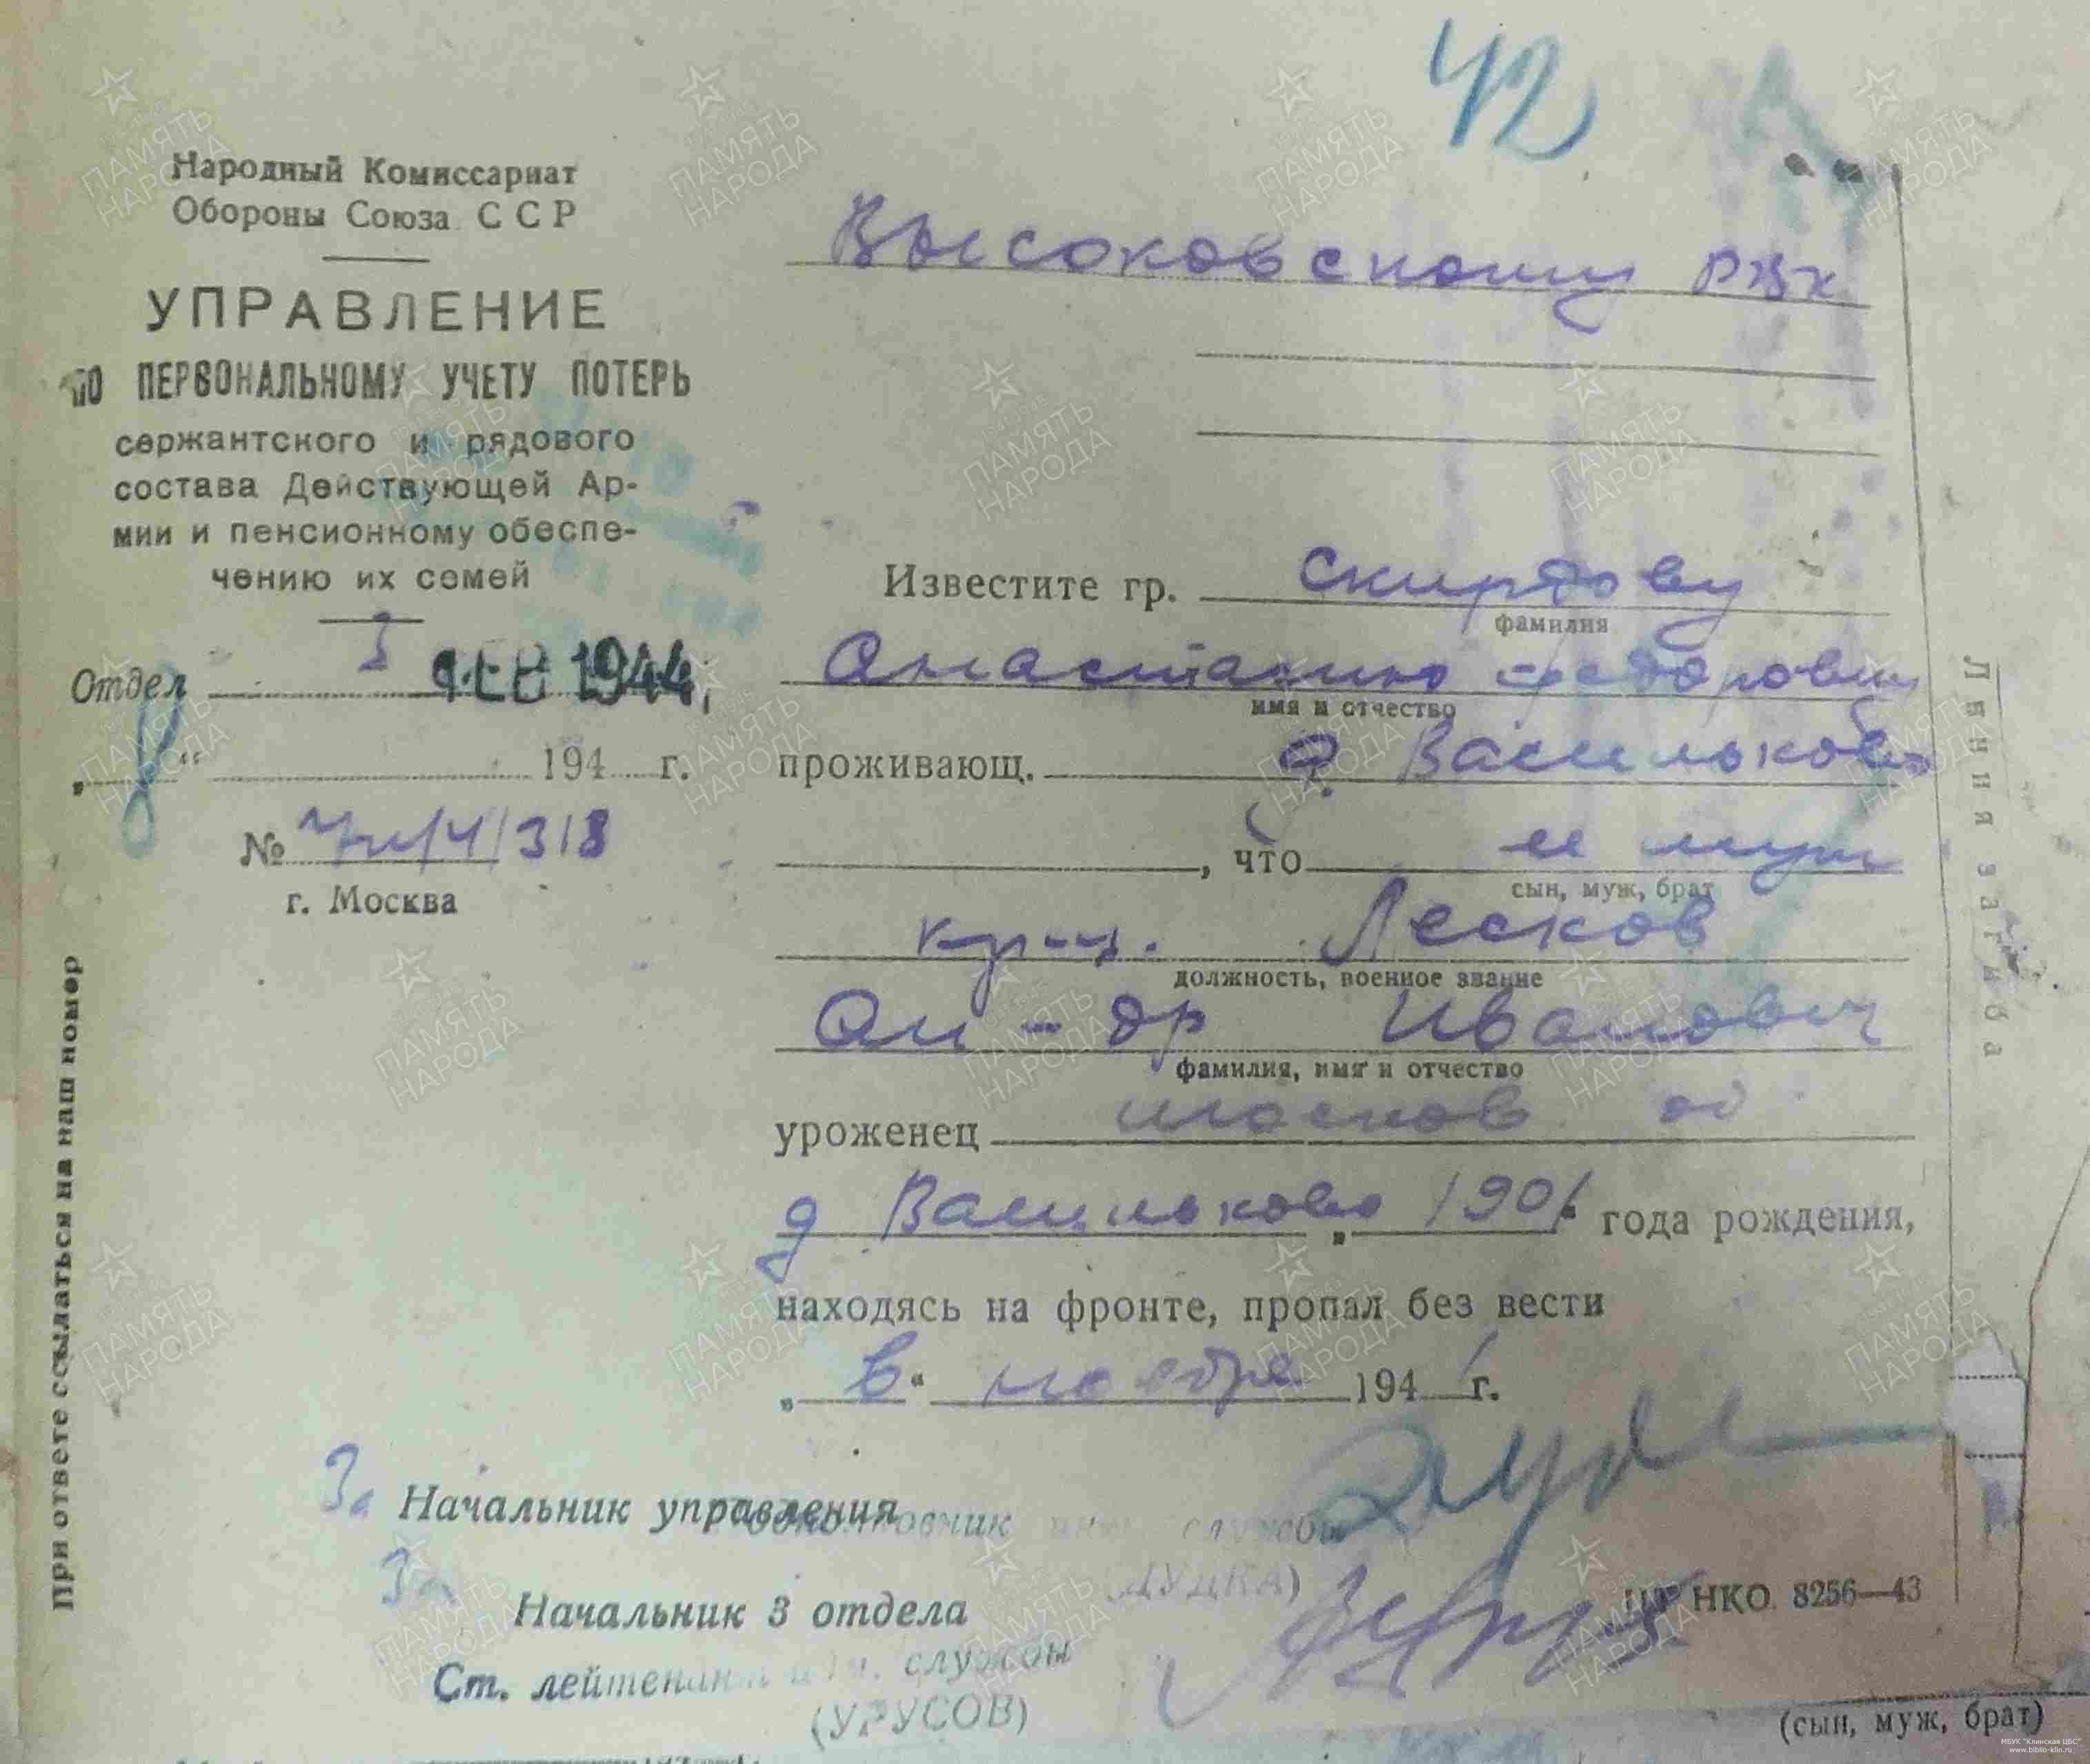 42
Народный Комиссариат
Обороны Союза ССР
УПРАВЛЕНИЕ
ПО ПЕРСОНАЛЬНОМУ УЧЕТУ ПОТЕРЬ
сержантского и рядового
состава Действующей Ар-
мии и пенсионному обеспе-
чению их семей
Отдел 3 1944
„8“ 194 г.
№ 4/318
г. Москва
При ответе ссылаться на наш номер
Высоковскому РВК
Известите гр. Скирдову
фамилия
Анастасию Федоровну
имя и отчество
проживающ. д. Васильково
, что ее муж
сын, муж, брат
кр-ц. Лесков
должность, военное звание
Ал-др Иванович
фамилия, имя и отчество
уроженец Москов об
д Васильково 1901 года рождения,
находясь на фронте, пропал без вести
„в“ ноябре 1941 г.
За Начальник управления
службы
За Начальник 3 отдела
Ст. лейтенант инт. службы
(УРУСОВ)
НКО 8256—43
Линия загиба
(сын, муж, брат)
ПАМЯТЬ НАРОДА
МБУК "Клинская ЦБС"
www.biblio-klin.ru